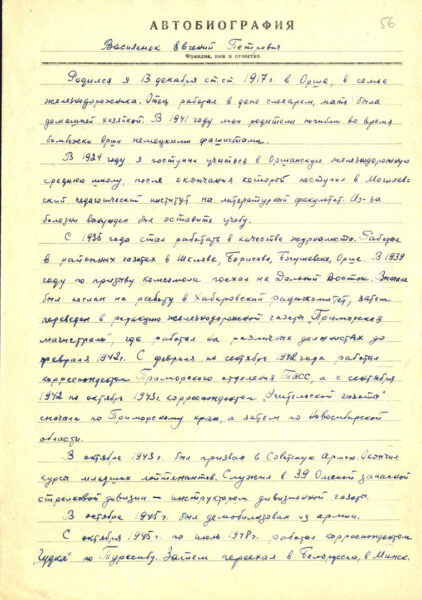 56
АВТОБИОГРАФИЯ
Василенок Евгений Петрович
Фамилия, имя и отчество
Родился я 13 декабря ст.ст. 1917 г. в Орше, в семье
железнодорожника. Отец работал в депо слесарем, мать была
домашней хозяйкой. В 1941 году мои родители погибли во время
бомбежки Орши немецкими фашистами.
В 1924 году я поступил учиться в Оршанскую железнодорожную
среднюю школу, после окончания которой поступил в Могилев-
ский педагогический институт на литературный факультет. Из-за
болезни вынужден был оставить учебу.
С 1935 года стал работать в качестве журналиста. Работал
в районных газетах в Шклове, Борисове, Богушевске, Орше. В 1939
году по призыву комсомола поехал на Дальний Восток. Вначале
был послан на работу в Хабаровский радиокомитет, затем
переведен в редакцию железнодорожной газеты „Приморская
магистраль", где работал на различных должностях до
февраля 1942 г. С февраля по сентябрь 1942 года работал
корреспондентом Приморского отделения ТАСС, а с сентября
1942 по октябрь 1943 г. корреспондентом „Учительской газеты"
сначала по Приморскому краю, а затем по Новосибирской
области.
В октябре 1943 г. был призван в Советскую Армию. Окончил
курсы младших лейтенантов. Служил в 39 Омской запасной
стрелковой дивизии — инструктором дивизионной газеты.
В октябре 1945 г. был демобилизован из армии.
С октября 1945 г. по июль 1948 г. работал корреспондентом
„Гудка" по Турксибу. Затем переехал в Белоруссию, в Минск.